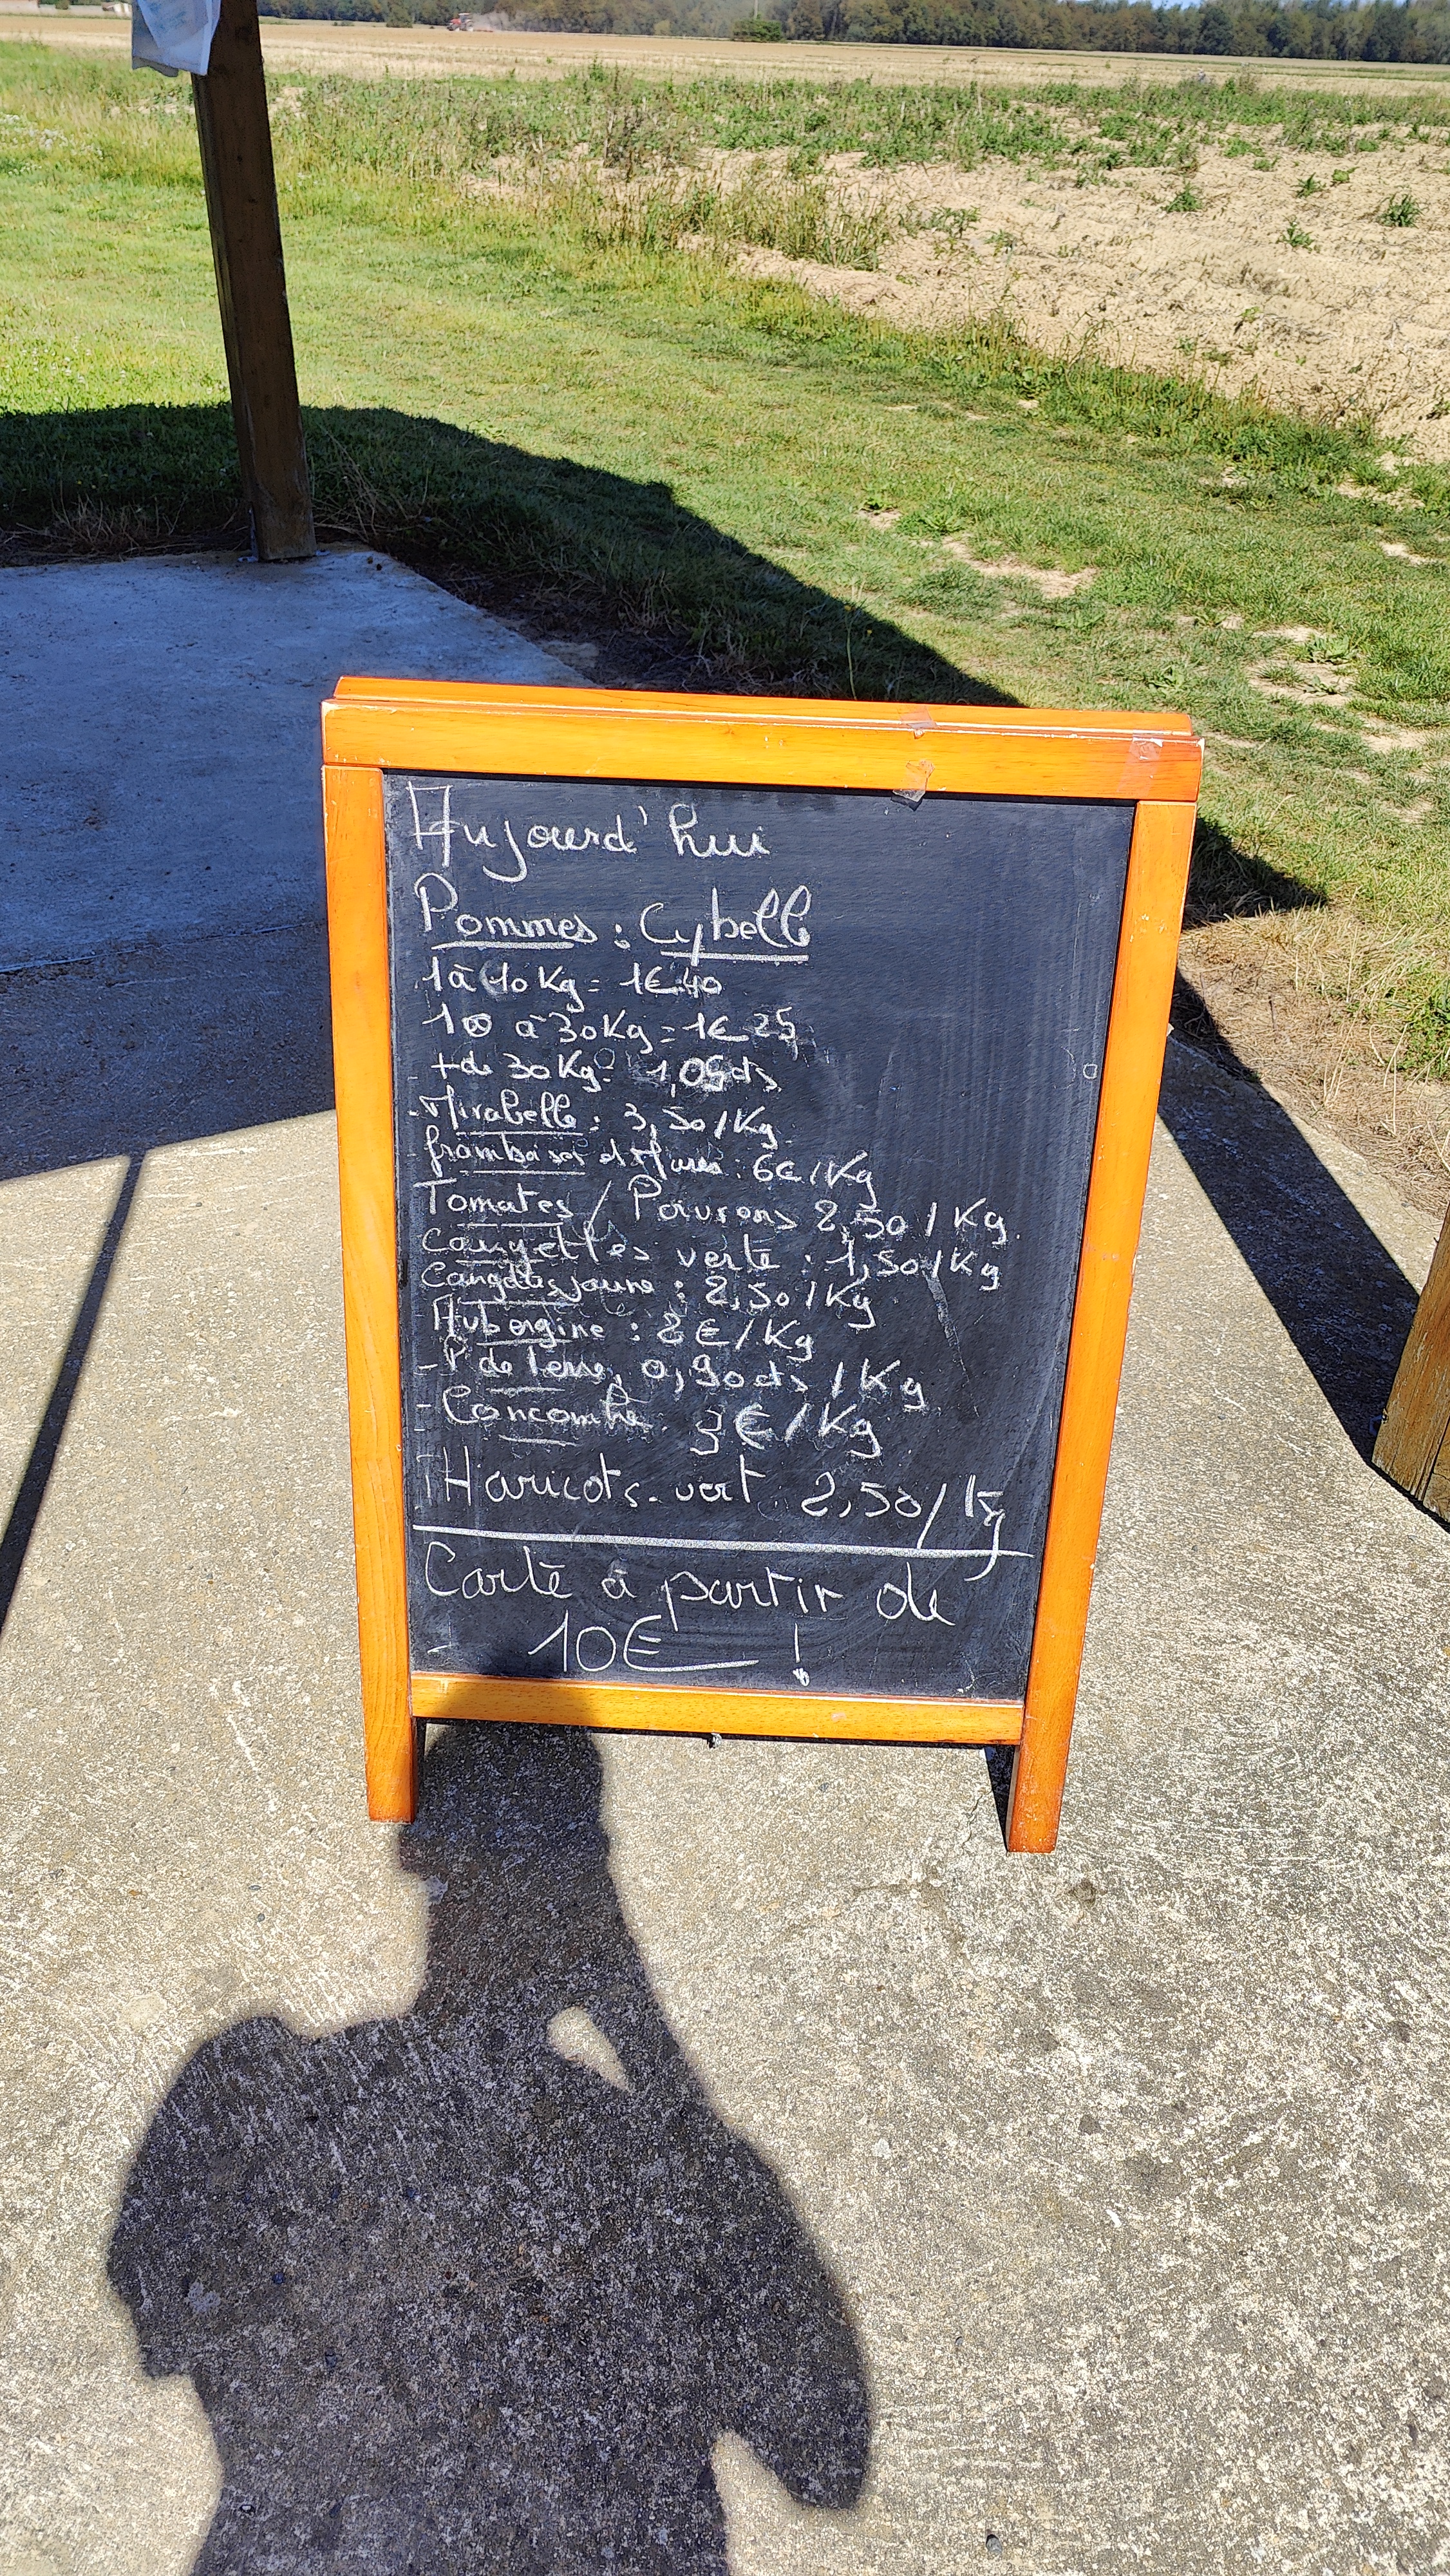 Aujourd'hui
Pommes : Cybelle
1 à 10 Kg = 1€40
10 à 30 Kg = 1€25
+ de 30 Kg : 1,05 cts
- Mirabelle : 3,50/Kg
- framboises et Mures : 6€/Kg
Tomates / Poivrons 2,50/Kg
courgettes verte : 1,50/Kg
Courgettes jaune : 2,50/Kg
Aubergine : 2€/Kg
- P de terre, 0,90cts/Kg
- Concombre 3€/Kg
Haricots vert 2,50/kg
Carte à partir de
10€ !